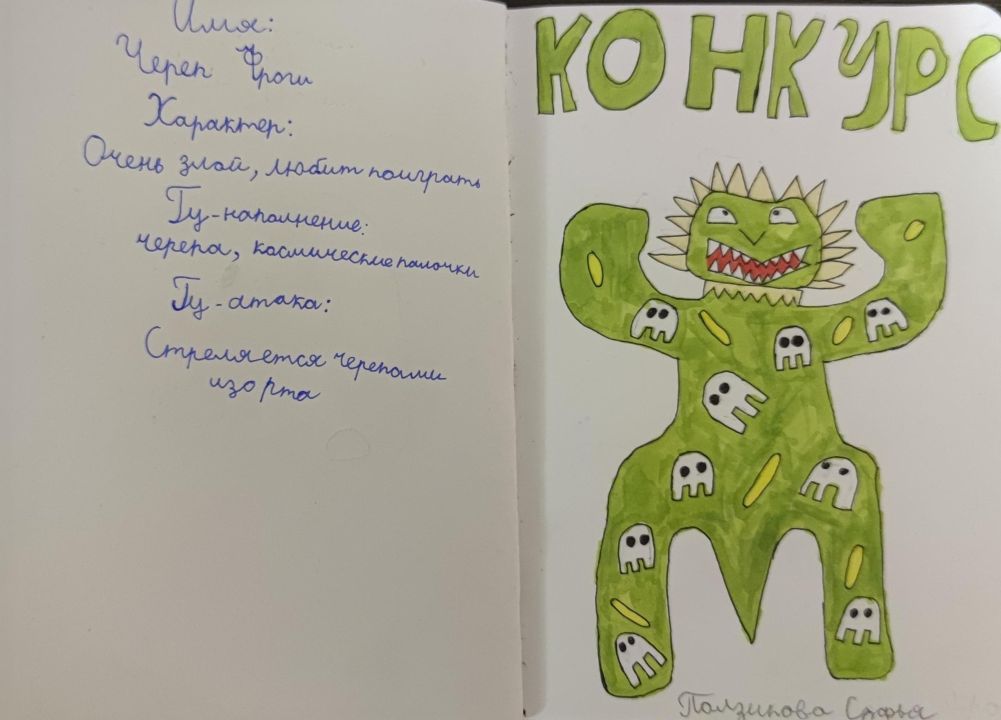 Имя:
Череп Фроги
Характер:
Очень злой, любит поиграть
Гу-наполнение:
черепа, космические палочки
Гу-атака:
Стреляется черепами
изо рта
КОНКУРС
Ползикова Софья